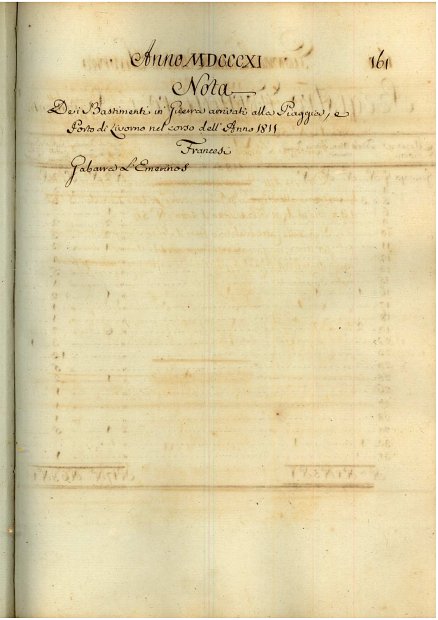 Anno MDCCCXI
161
Nota
Dei Bastimenti in Guerra arrivati alla Piaggia, e
Porto di Livorno nel corso dell'Anno 1811
Francesi
Gabarra L'Emerinos